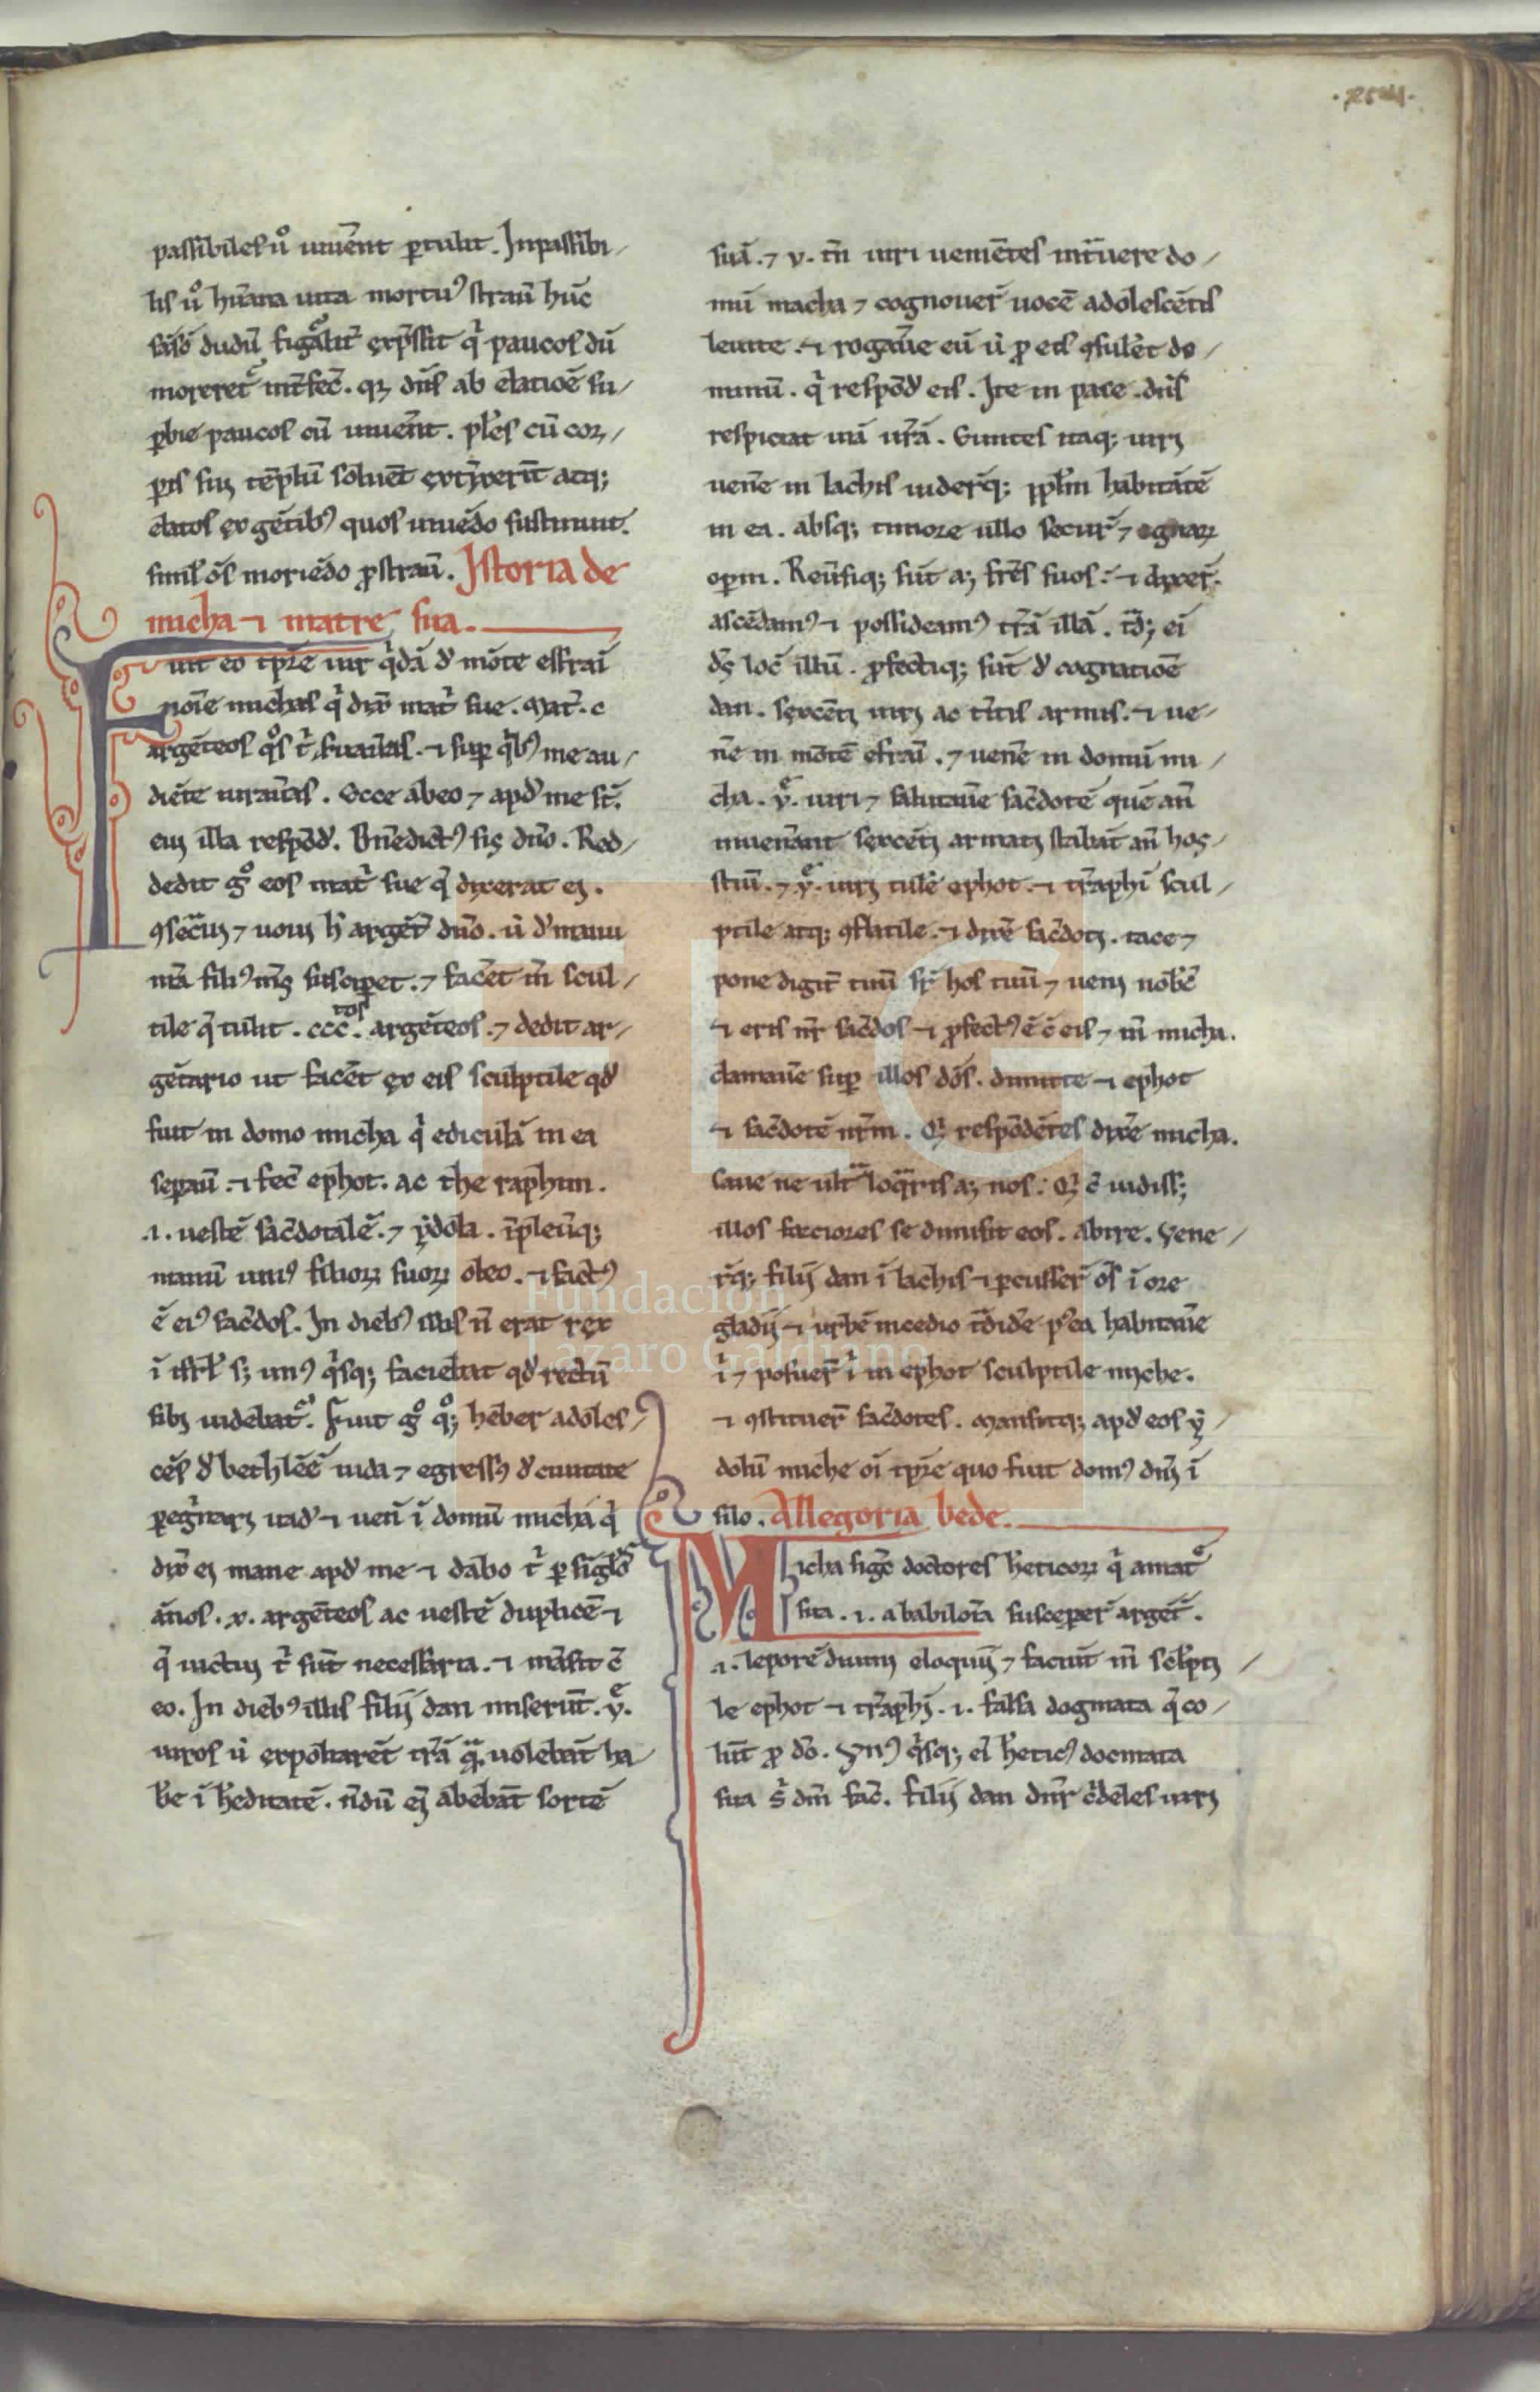 ·xciiii·
passibiles u͛o uiuēnt ꝑtulit. Inpassibi/
lis u͛o hūana uita mortuꝰ straū hūc
moreret᷑ int̄fec̄. qꝫ dn̄s ab elatiōe su/
ꝑbie paucos cū uiuēnt. pl̄es cū corꝑ/
elatos ex gētibꝰ quos uiuēdo sustinuit.
simĺ om̄s moriēdo ꝓstraū. Istoria de
micha ⁊ matre sua.
Fuit eo tp̄re uir qͥdā đ mōte effraī
noīe michas qͥ dix̄ matͥ sue. Mat̄. c
argēteos qͦs tͥ sūaūas. ⁊ suꝑ qͥbꝰ me au/
diēte iuraūas. Ecce abeo ⁊ apđ me st̄.
cui illa respōđ. Bn̄edictꝰ sis dn̄o. Red/
dedit gͦ eos matͥ sue qͥ dixerat ei.
ꝯsec̄ui ⁊ uoui h̄ argēt̄ dn̄o. ut̄ đ manu
mā filiꝰ ms̄ susciꝑet. ⁊ facēt m̄ scul/
tile qͥ tulit. ccc.tos argēteos. ⁊ dedit ar/
gētario ut facēt ex eis sculptile qđ
fuit in domo micha qͥ ediculā in ea
seꝑaū. ⁊ fec̄ ephot. ac the raphim.
.i. uestē sac̄dotalē. ⁊ ydola. īpleūqꝫ
manū uniꝰ filioꝝ suoꝝ oleo. ⁊ factꝰ
ē eiꝰ sac̄dos. In diebꝰ illis n̄ erat rex
ī isrĺ sꝫ unꝰ qͥsqꝫ faciebat qđ rectū
sibi uidebat᷑. Fuit gͦ qͦqꝫ heber adoles/
cēs đ bethleē iuda ⁊ egressꝰ đ ciuitate
ꝑegͥnari uađ ⁊ ueń ī domū micha qͥ
dix̄ ei mane apđ me ⁊ dabo tͥ ꝑ sīglos
ānos. x. argēteos ac uestē duplicē ⁊
q̄ uictui tͥ sūt necessaria. ⁊ māsit c̄
eo. In diebꝰ illis filii dan miserūt. v.
uiros ut̄ exploᷓarēt tr̄ā qᷓ uolebāt ha
b̄e ī h̄editatē. n̄dū eī abebāt sortē
suā. ⁊ v. tn̄ uiri ueniētes intᷓuere do/
mū macha ⁊ cognouer̄ uocē adolescētis
leuite. ⁊ rogaūe eū ut̄ ꝓ eis ꝯsulēt do/
minū. qͥ respōđ eis. Ite in pace. dn̄s
respiciat uiā ur̄ā. Euntes itaqꝫ uiri
uēne in lachis uider̄qꝫ ppĺm habitātē
in ea. absqꝫ timore ullo secur̄ ⁊
opm. Reūsiqꝫ sūt aꝫ frēs suos. ⁊ dixer̄.
ascēdamꝰ ⁊ possideamꝰ tr̄ā illā.
dn̄s locū illū. ꝓfectiqꝫ sūt đ cognatiōe
dan. sexcēti uiri ac
nē in mōtē efraī. ⁊ uenē in domū mi/
cha. v. uiri ⁊ salutaūe sac̄dotē quē an̄
inuenāant sexcēti armati stabāt an̄ hos/
tiū. ⁊ v. uiri tulē ephot. ⁊ tr̄aphī scul/
ptile atqꝫ ꝯflatile. ⁊ dixē sac̄doti. tace ⁊
pone digit̄ tuū sr̄ hos tuū ⁊ ueni nobc̄
⁊ eris nr̄ sac̄dos ⁊ ꝓfectꝰ ē c̄ eis ⁊ m̄ micha.
clamaūe suꝑ illos dōs. dimitte ⁊ ephot
⁊ sac̄dotē nr̄m. Qͥ respōdētes dixē micha.
caue ne ultᷓ loqᷓris aꝫ nos. Qͥ c̄ uidissꝫ
illos forciores se dimisit eos. abire. Vene/
r̄qꝫ filii dan ī lachis ⁊ ꝑcusser̄ ōs ī ore
gladii ⁊ urbē incedio tᷓdidē pꝰ ea habitaūe
ī ⁊ posuer̄ ī in ephot sculptile miche.
⁊ ꝯstituer̄ sac̄dotes. Mansitqꝫ apđ eos y/
dolū miche oī tp̄re quo fuit domꝰ dn̄i ī
silo. Allegoria bede.
Micha sig᷑c̄ doctores h̄eticoꝝ qͥ amat᷑
sua. .i. a babiloīa susceꝑer̄ argēt̄.
.i. leporē diuini eloquii ⁊ faciūt m̄ sc̄lpti/
le ephot ⁊ tr̄aphī. .i. falsa dogmata q̄ co/
lūt ꝓ dō. Vnꝰ qͥsqꝫ eī h̄eticꝰ docmata
sua sͥ dm̄ fac̄. filii dan dn̄r c̄deles uiri